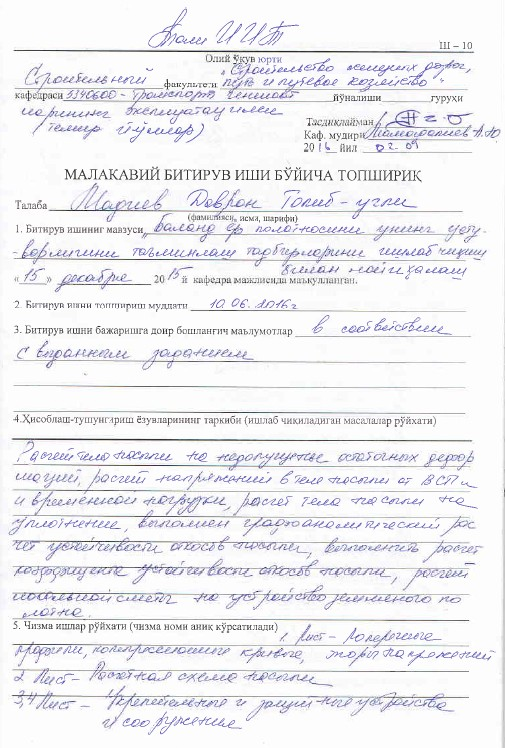 Тош ИИТ
Ш – 10
Олий ўқув юрти
Строительный факультети "Строительство железных дорог, путь и путевое хозяйство"
кафедраси 5340600 - Транспорт йўналиши гуруҳи
ларининг эксплуатацияси
(темир йўллар)
Тасдиқлайман
Каф. мудири
2016 йил 02.09
МАЛАКАВИЙ БИТИРУВ ИШИ БЎЙИЧА ТОПШИРИҚ
Талаба Даврон Голиб-угли
(фамилияси, исми, шарифи)
1. Битирув ишининг мавзуси „Баланд ер полотносини унинг усту-
ворлигини таъминлаш тадбирларини ишлаб чиқиш
билан лойиҳалаш
« 15 » декабрь 2015 й кафедра мажлисида маъқулланган.
2. Битирув ишни топшириш муддати 10.06.2016 г
3. Битирув ишни бажаришга доир бошланғич маълумотлар в соотвействии
с выданным заданием
4.Ҳисоблаш-тушунтириш ёзувларининг таркиби (ишлаб чиқиладиган масалалар рўйхати)
Расчет тела насыпи на недопущенье остаточных дефор
маций, расчет напряжений в теле насыпи от ВСП и
и временной нагрузки, расчет тела насыпи на
уплотнение, выполнен графоаналитический рас
чет устойчивости откосов насыпи, выполнить расчет
коэффициента устойчивости откосов насыпи, расчет
локальной сметы на устройство земляного по
лотна.
5. Чизма ишлар рўйхати (чизма номи аниқ кўрсатилади)
1. Лист – Поперечные
профили, компрессионные кривые, эпюры напряжений
2 Лист – Расчетная схема насыпи
3,4 Лист – Укрепительные и защитные устройства
и сооружение